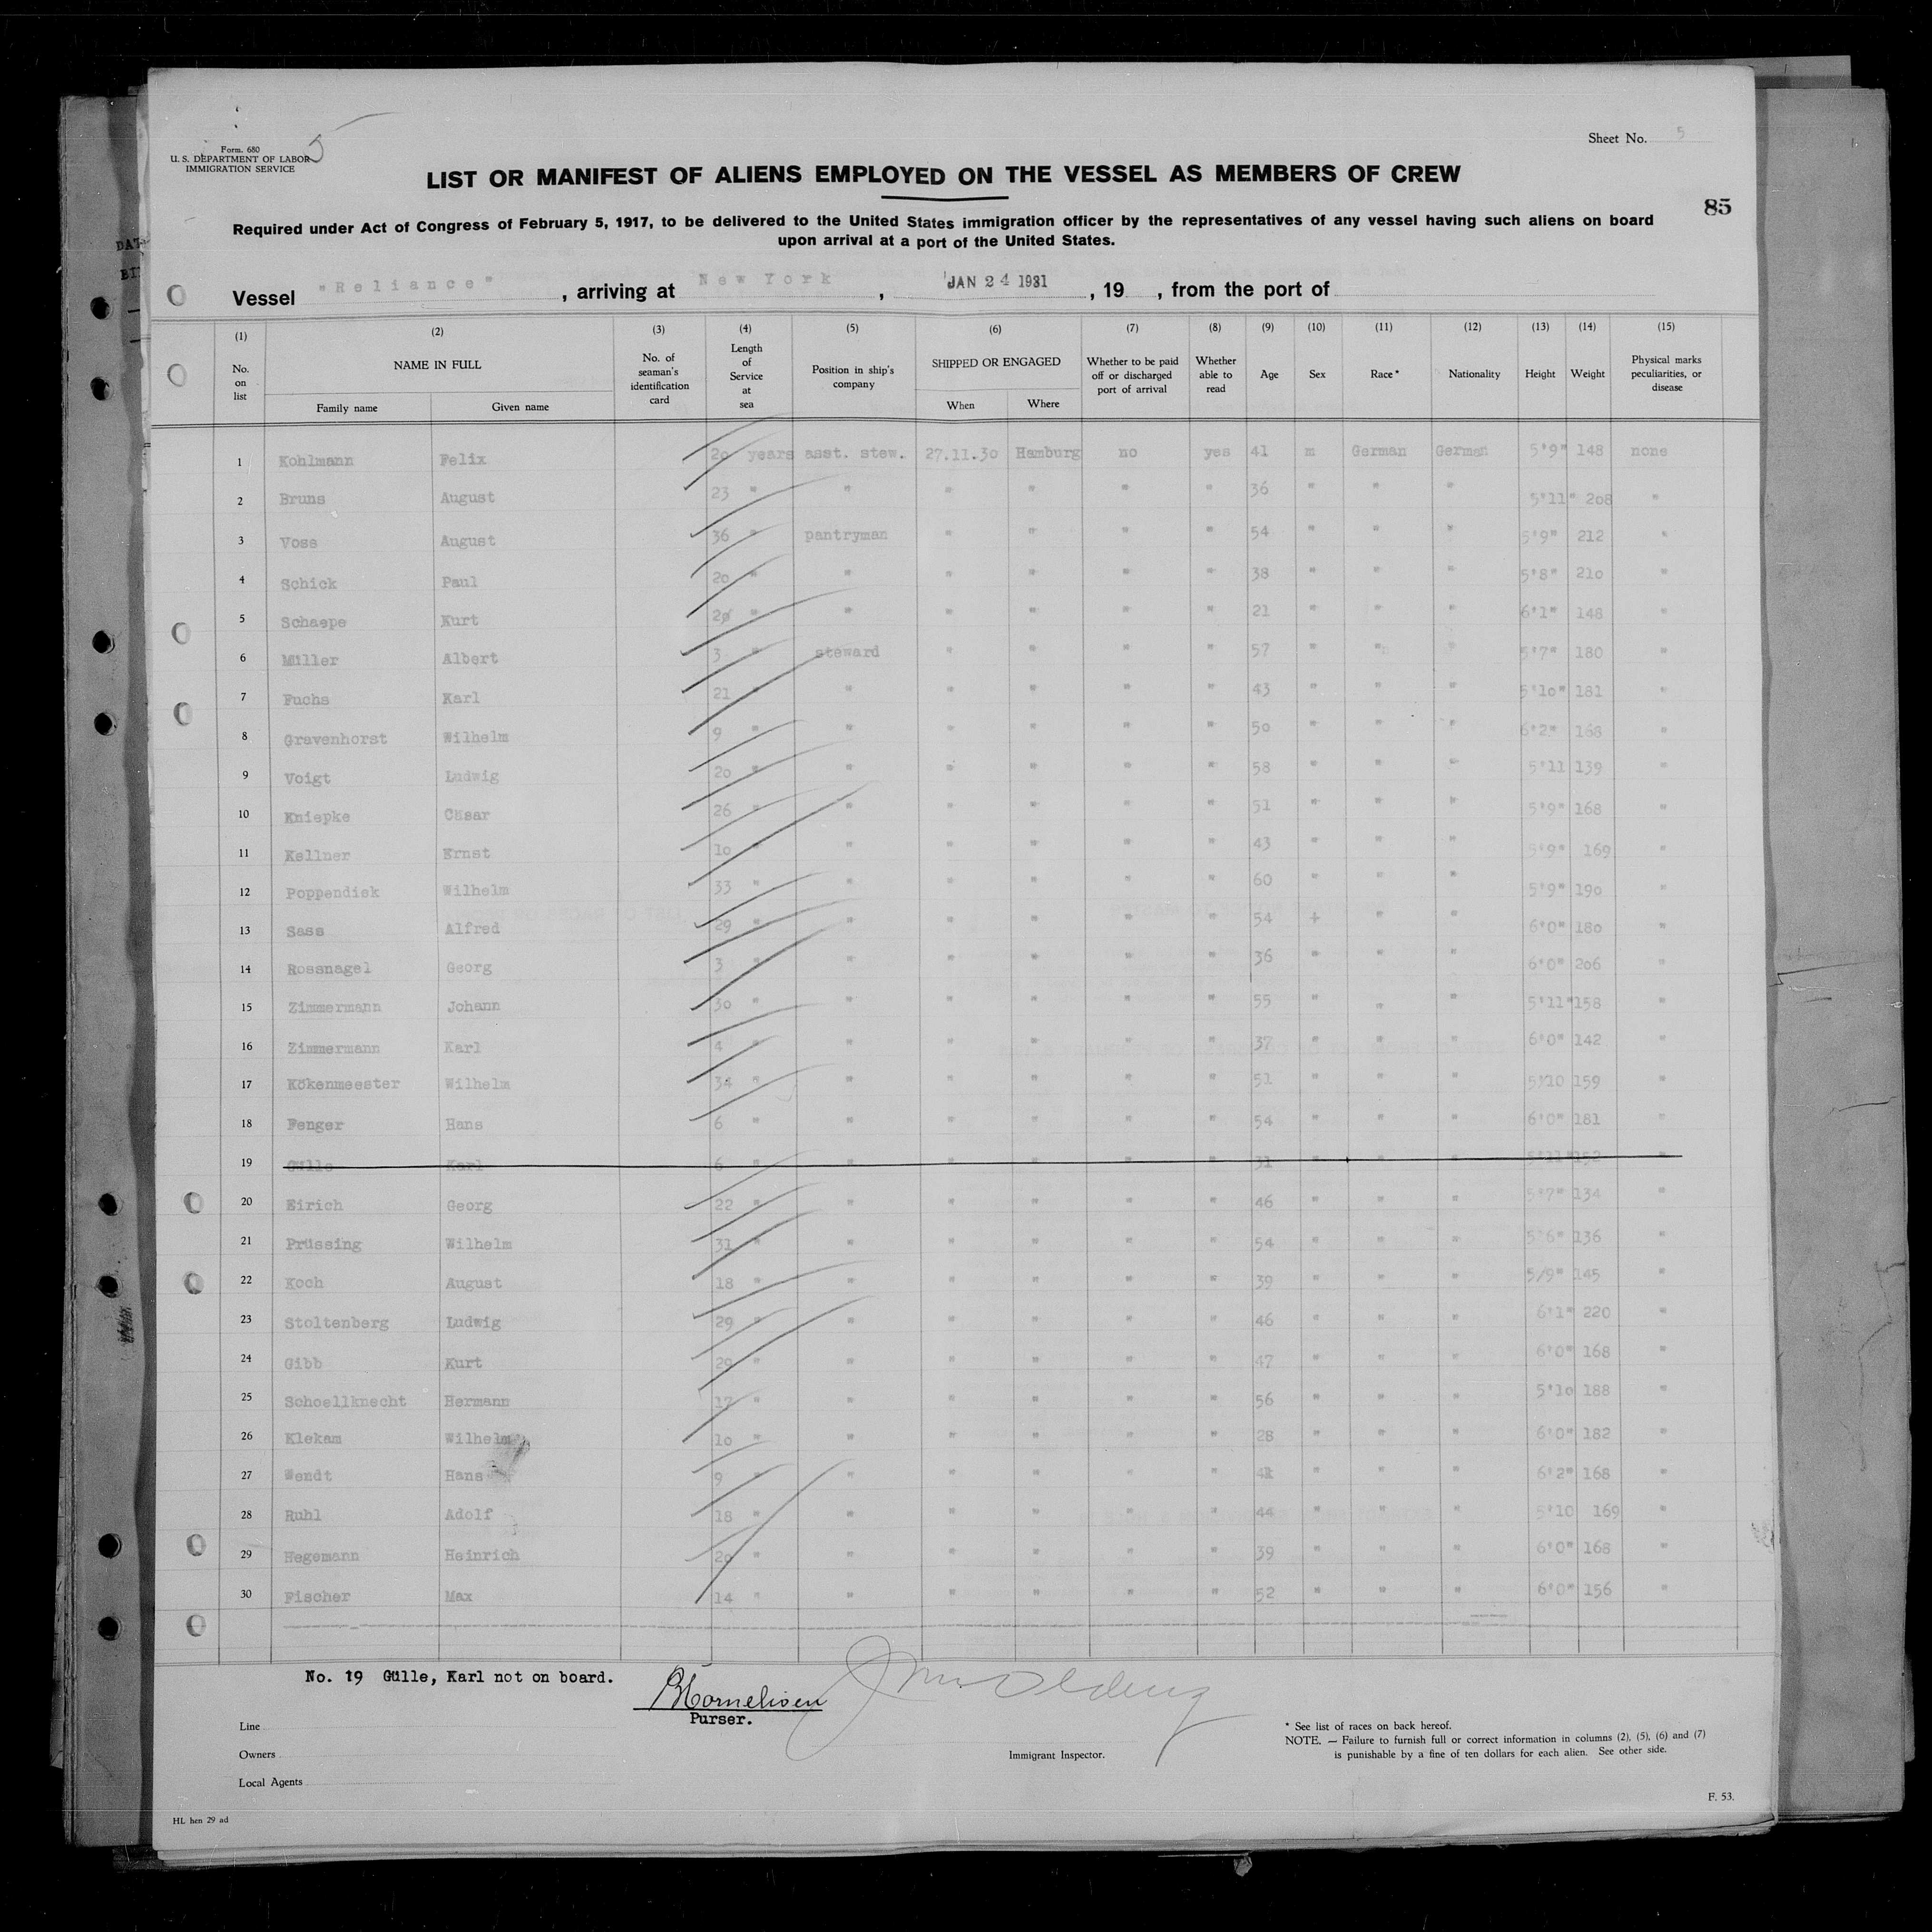 Form. 680
U. S. DEPARTMENT OF LABOR
IMMIGRATION SERVICE
5
Sheet No. 5
LIST OR MANIFEST OF ALIENS EMPLOYED ON THE VESSEL AS MEMBERS OF CREW
85
Required under Act of Congress of February 5, 1917, to be delivered to the United States immigration officer by the representatives of any vessel having such aliens on board
upon arrival at a port of the United States.
Vessel "Reliance" , arriving at New York , JAN 24 1931 , 19 , from the port of
(1) (2) (3) (4) (5) (6) (7) (8) (9) (10) (11) (12) (13) (14) (15)
No. on list NAME IN FULL No. of seaman's identification card Length of Service at sea Position in ship's company SHIPPED OR ENGAGED Whether to be paid off or discharged port of arrival Whether able to read Age Sex Race* Nationality Height Weight Physical marks peculiarities, or disease
Family name Given name When Where
1 Kohlmann Felix 20 years asst. stew. 27.11.30 Hamburg no yes 41 m German German 5'9" 148 none
2 Bruns August 23 " " " " " " 36 " " " 5'11" 208 "
3 Voss August 36 " pantryman " " " " 54 " " " 5'9" 212 "
4 Schick Paul 20 " " " " " " 38 " " " 5'8" 210 "
5 Schaepe Kurt 2 " " " " " " 21 " " " 6'1" 148 "
6 Müller Albert 3 " steward " " " " 57 " " " 5'7" 180 "
7 Fuchs Karl 21 " " " " " " 43 " " " 5'10" 181 "
8 Gravenhorst Wilhelm 9 " " " " " " 50 " " " 6'2" 168 "
9 Voigt Ludwig 20 " " " " " " 58 " " " 5'11 139 "
10 Kniepke Cäsar 26 " " " " " " 51 " " " 5'9" 168 "
11 Kellner Ernst 10 " " " " " " 43 " " " 5'9" 169 "
12 Poppendiek Wilhelm 33 " " " " " " 60 " " " 5'9" 190 "
13 Sass Alfred 29 " " " " " " 54 + " " 6'0" 180 "
14 Rossnagel Georg 3 " " " " " " 36 " " " 6'0" 206 "
15 Zimmermann Johann 30 " " " " " " 55 " " " 5'11" 158 "
16 Zimmermann Karl 4 " " " " " " 37 " " " 6'0" 142 "
17 Kökenmeester Wilhelm 34 " " " " " " 51 " " " 5'10 159 "
18 Fenger Hans 6 " " " " " " 54 " " " 6'0" 181 "
19 Gülle Karl 6 " " " " " " 31 " " " 5'11" 152 "
20 Eirich Georg 22 " " " " " " 46 " " " 5'7" 134 "
21 Prüssing Wilhelm 31 " " " " " " 54 " " " 5'6" 136 "
22 Koch August 18 " " " " " " 39 " " " 5/9" 145 "
23 Stoltenberg Ludwig 29 " " " " " " 46 " " " 6'1" 220 "
24 Gibb Kurt 29 " " " " " " 47 " " " 6'0" 168 "
25 Schoellknecht Hermann 17 " " " " " " 56 " " " 5'10 188 "
26 Klekam Wilhelm 10 " " " " " " 28 " " " 6'0" 182 "
27 Wendt Hans 9 " " " " " " " " " 6'2" 168 "
28 Ruhl Adolf 18 " " " " " " 44 " " " 5'10 169 "
29 Hegemann Heinrich 20 " " " " " " 39 " " " 6'0" 168 "
30 Fischer Max 14 " " " " " " 52 " " " 6'0" 156 "
No. 19 Gülle, Karl not on board.
Purser.
Line
Owners
Local Agents
Immigrant Inspector.
* See list of races on back hereof.
NOTE. — Failure to furnish full or correct information in columns (2), (5), (6) and (7)
is punishable by a fine of ten dollars for each alien. See other side.
F. 53.
HL hen 29 ad